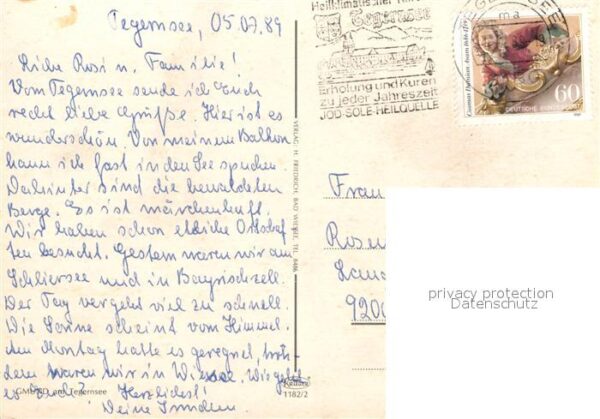 Tegernsee, 05.07.89
Liebe Rosi u. Familie!
Vom Tegernsee sende ich Euch
recht liebe Grüße. Hier ist es
wunderschön. Von meinem Balkon
kann ich fast in den See spucken.
Dahinter sind die bewaldeten
Berge. Es ist märchenhaft.
Wir haben schon etliche Ortschaf
ten besucht. Gestern waren wir am
Schliersee und in Bayrischzell.
Der Tag vergeht viel zu schnell.
Die Sonne scheint vom Himmel.
Am Montag hatte es geregnet, trotz-
dem waren wir in Wiessee. Wie geht
es Euch? Herzlichst!
Deine
GMUND am Tegernsee
VERLAG H. FRIEDRICH, BAD WIESSEE, TEL.
1182/2
Heilklimatischer
Tegernsee
Erholung und Kuren
zu jeder Jahreszeit
JOD-SOLE-HEILQUELLE
ma
60
DEUTSCHE BUNDESPOST
Cosmas Damian Asam 1686-1739
Frau
Rosen
Land
9200
privacy protection
Datenschutz